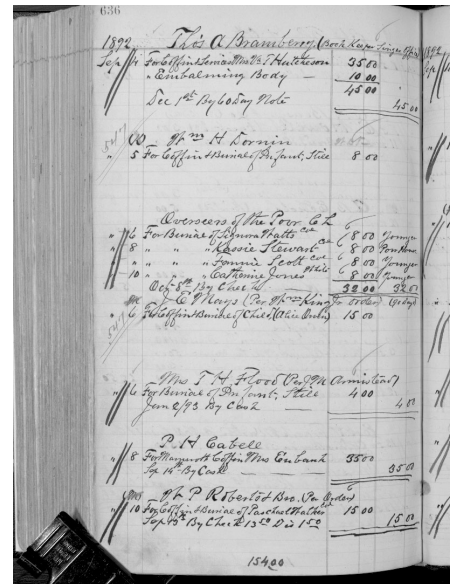 636
1892 Thos A Bramberry (Book Keeper Singer Office)
Sep 4 For Coffin & Services Mrs B. T Hutcheson 35 00
" Embalming Body — 10 00
45 00
Dec 1st By 60 Day Note 45 00
Wm H Dornin
547 " 5 For Coffin & Burial of Infant, Still 8 00
Overseers of the Poor C L
" 6 For Burial of Signora Watts Col 6 8 00 Younger
" 8 " " " Kassie Stewart Col 6 8 00
" " " " " Fannie Scott Col 6 8 00 Younger
" 10 " " " Catherine Jones White 6 8 00 Younger
Oct 8th By Check 32 00 32 00
J. E. Mays (Per Wm King Jr order)
547 " 6 For Coffin & Burial of Child 15 00
Mrs T. H. Flood (Per J M Armistead)
" 6 For Burial of Infant, Still 4 00
June 2/93 By Cash 4 00
P. H Cabell
" 8 For Mammoth Coffin Mrs Eubank 35 00
Sep 14th By Cash 35 00
W. P Roberts & Bro. (Per Order)
" 10 For Coffin & Burial of Paschal Walker Col 15 00
Sep By Check 13 50 Dis 1 50 15 00
154 00